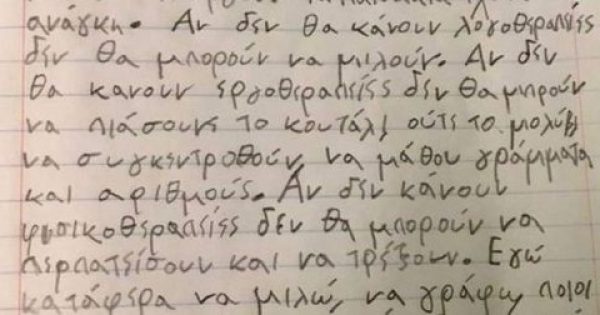 ανάγκη. Αν δεν θα κάνουν λόγοθεραπείες
δεν θα μπορούν να μιλούν. Αν δεν
θα κανουν εργοθεραπείες δεν θα μπρούν
να πιάσουνε το κουτάλι ούτε το μολύβι
να συγκεντροθούν, να μάθου γράμματα
και αριθμούς. Αν δεν κάνουν
φυσικοθεραπείες δεν θα μπορούν να
περπατείσουν και να τρέξουν. Εγώ
κατάφερα να μιλώ, να γράφω, ποιοι